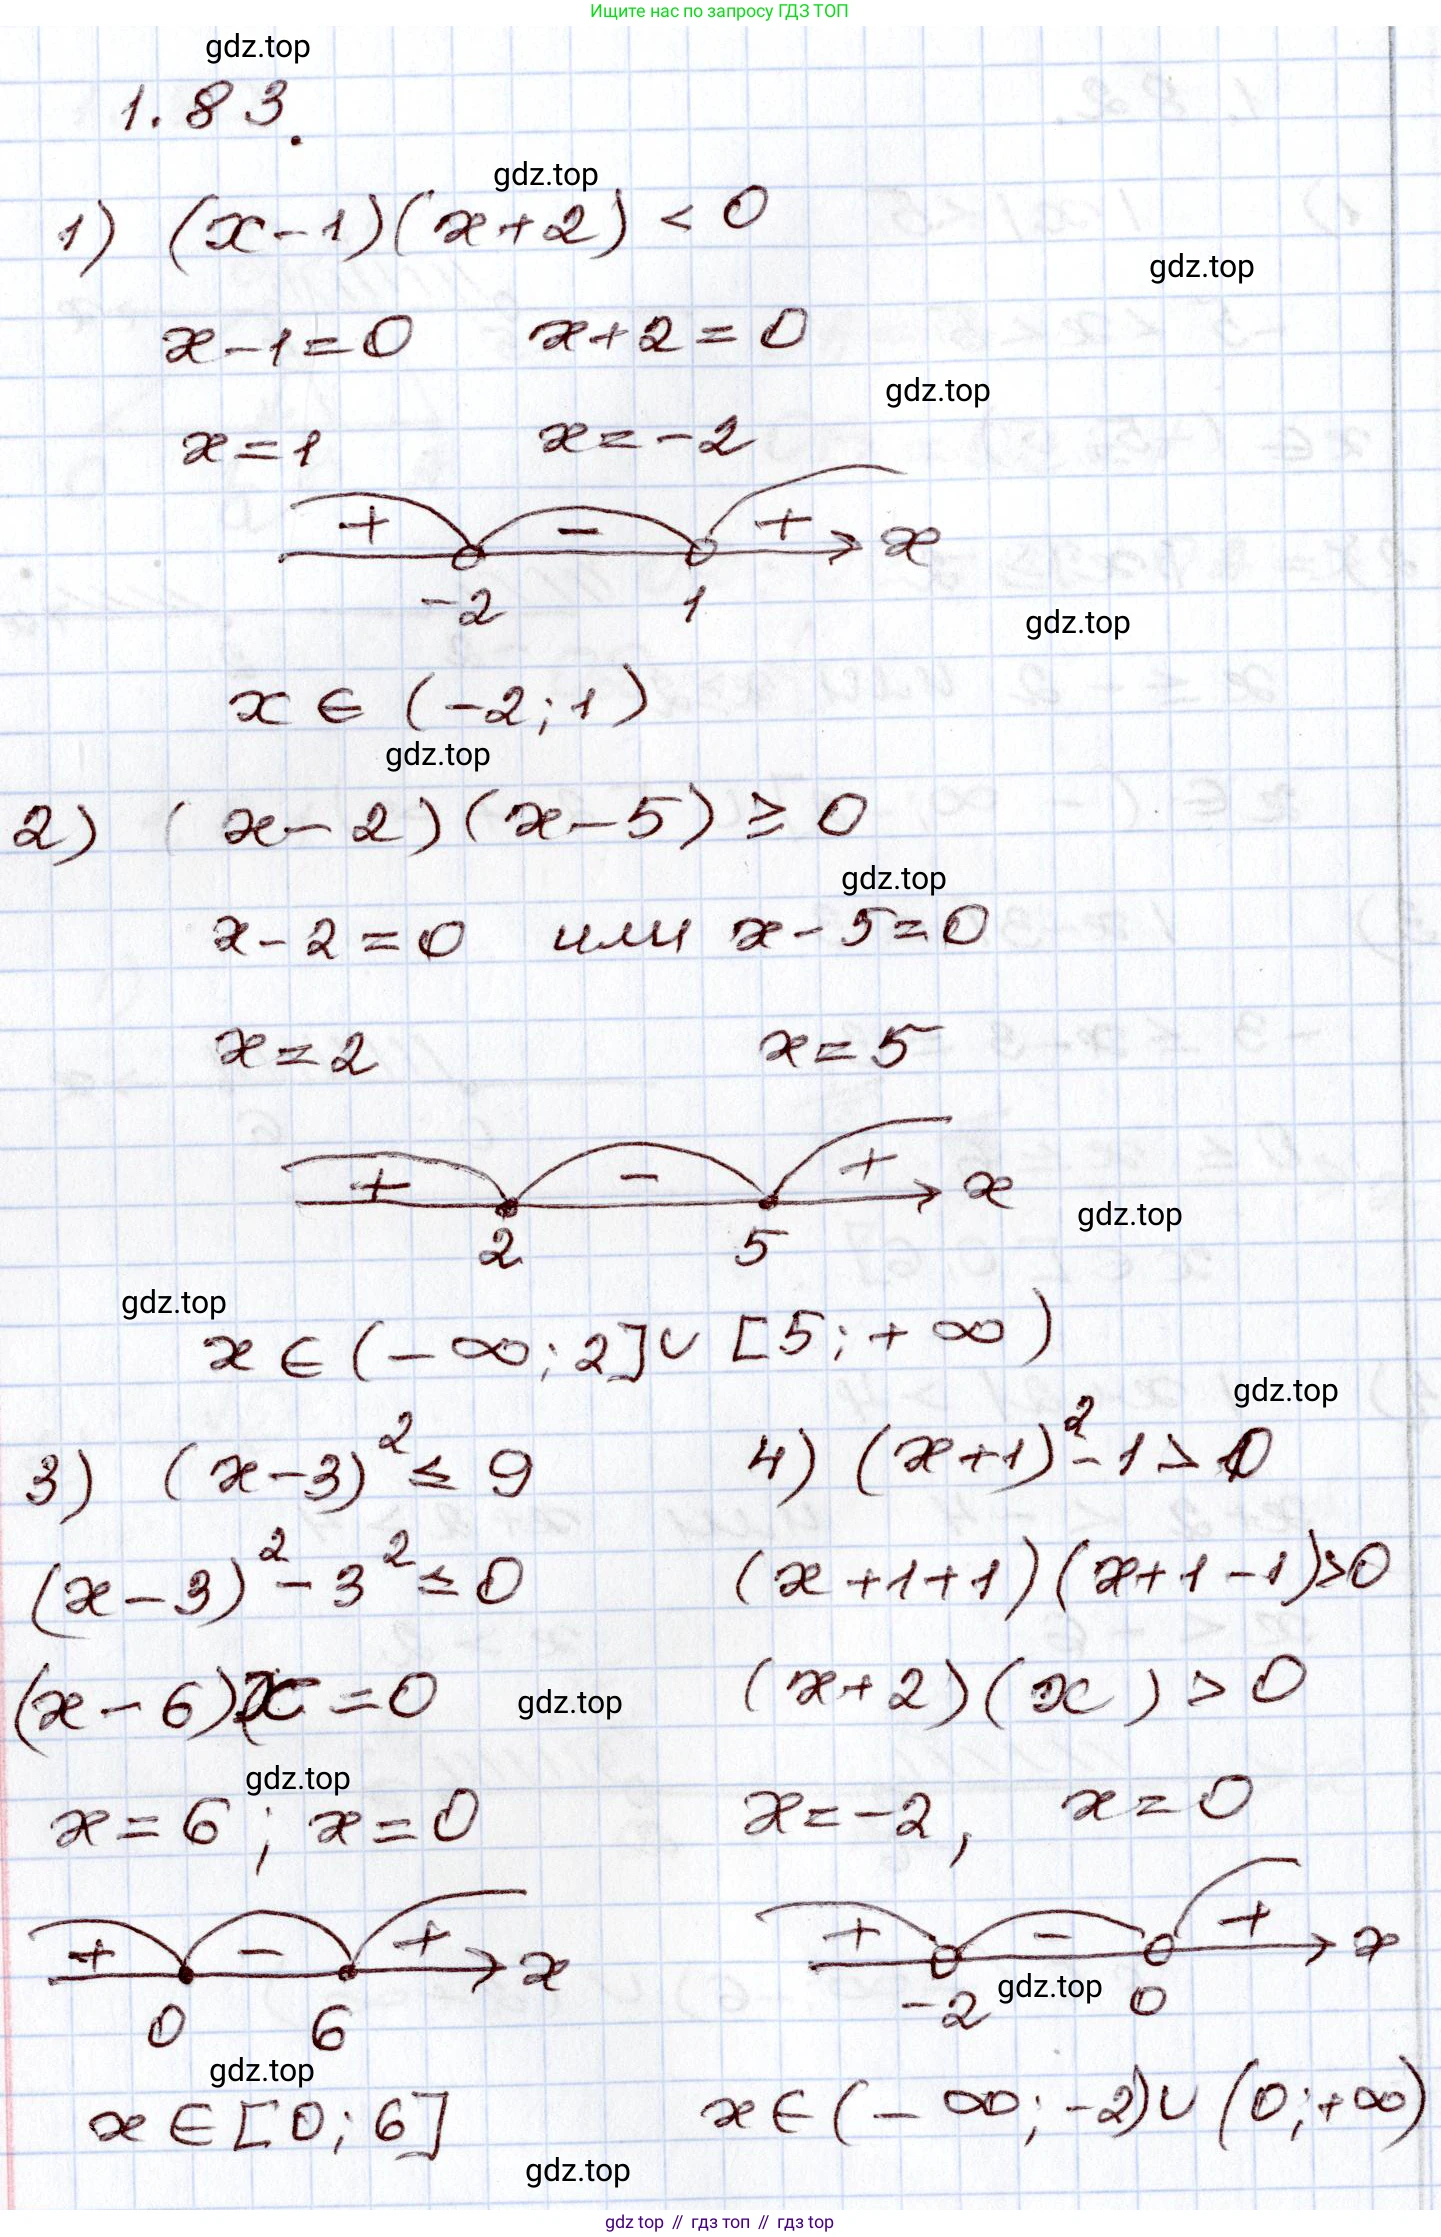 Ищите нас по запросу ГДЗ ТОП
gdz.top
1.83.
gdz.top
1) (x-1)(x+2) < 0
gdz.top
x-1=0 x+2=0
gdz.top
x=1 x=-2
+ - + x
-2 1
gdz.top
x ∈ (-2; 1)
gdz.top
2) (x-2)(x-5) ≥ 0
gdz.top
x-2=0 или x-5=0
x=2 x=5
+ - + x
gdz.top
2 5
gdz.top
x ∈ (-∞; 2] ∪ [5; +∞)
gdz.top
3) (x-3)² ≤ 9
(x-3)² - 3² ≤ 0
(x-6)(x = 0
gdz.top
gdz.top
x=6; x=0
+ - + x
0 6
gdz.top
x ∈ [0; 6]
gdz.top
4) (x+1)² - 1 > 0
(x+1+1)(x+1-1) > 0
(x+2)(x) > 0
x=-2, x=0
+ - + x
gdz.top
-2 0
x ∈ (-∞; -2) ∪ (0; +∞)
gdz top // гдз топ // гдз top